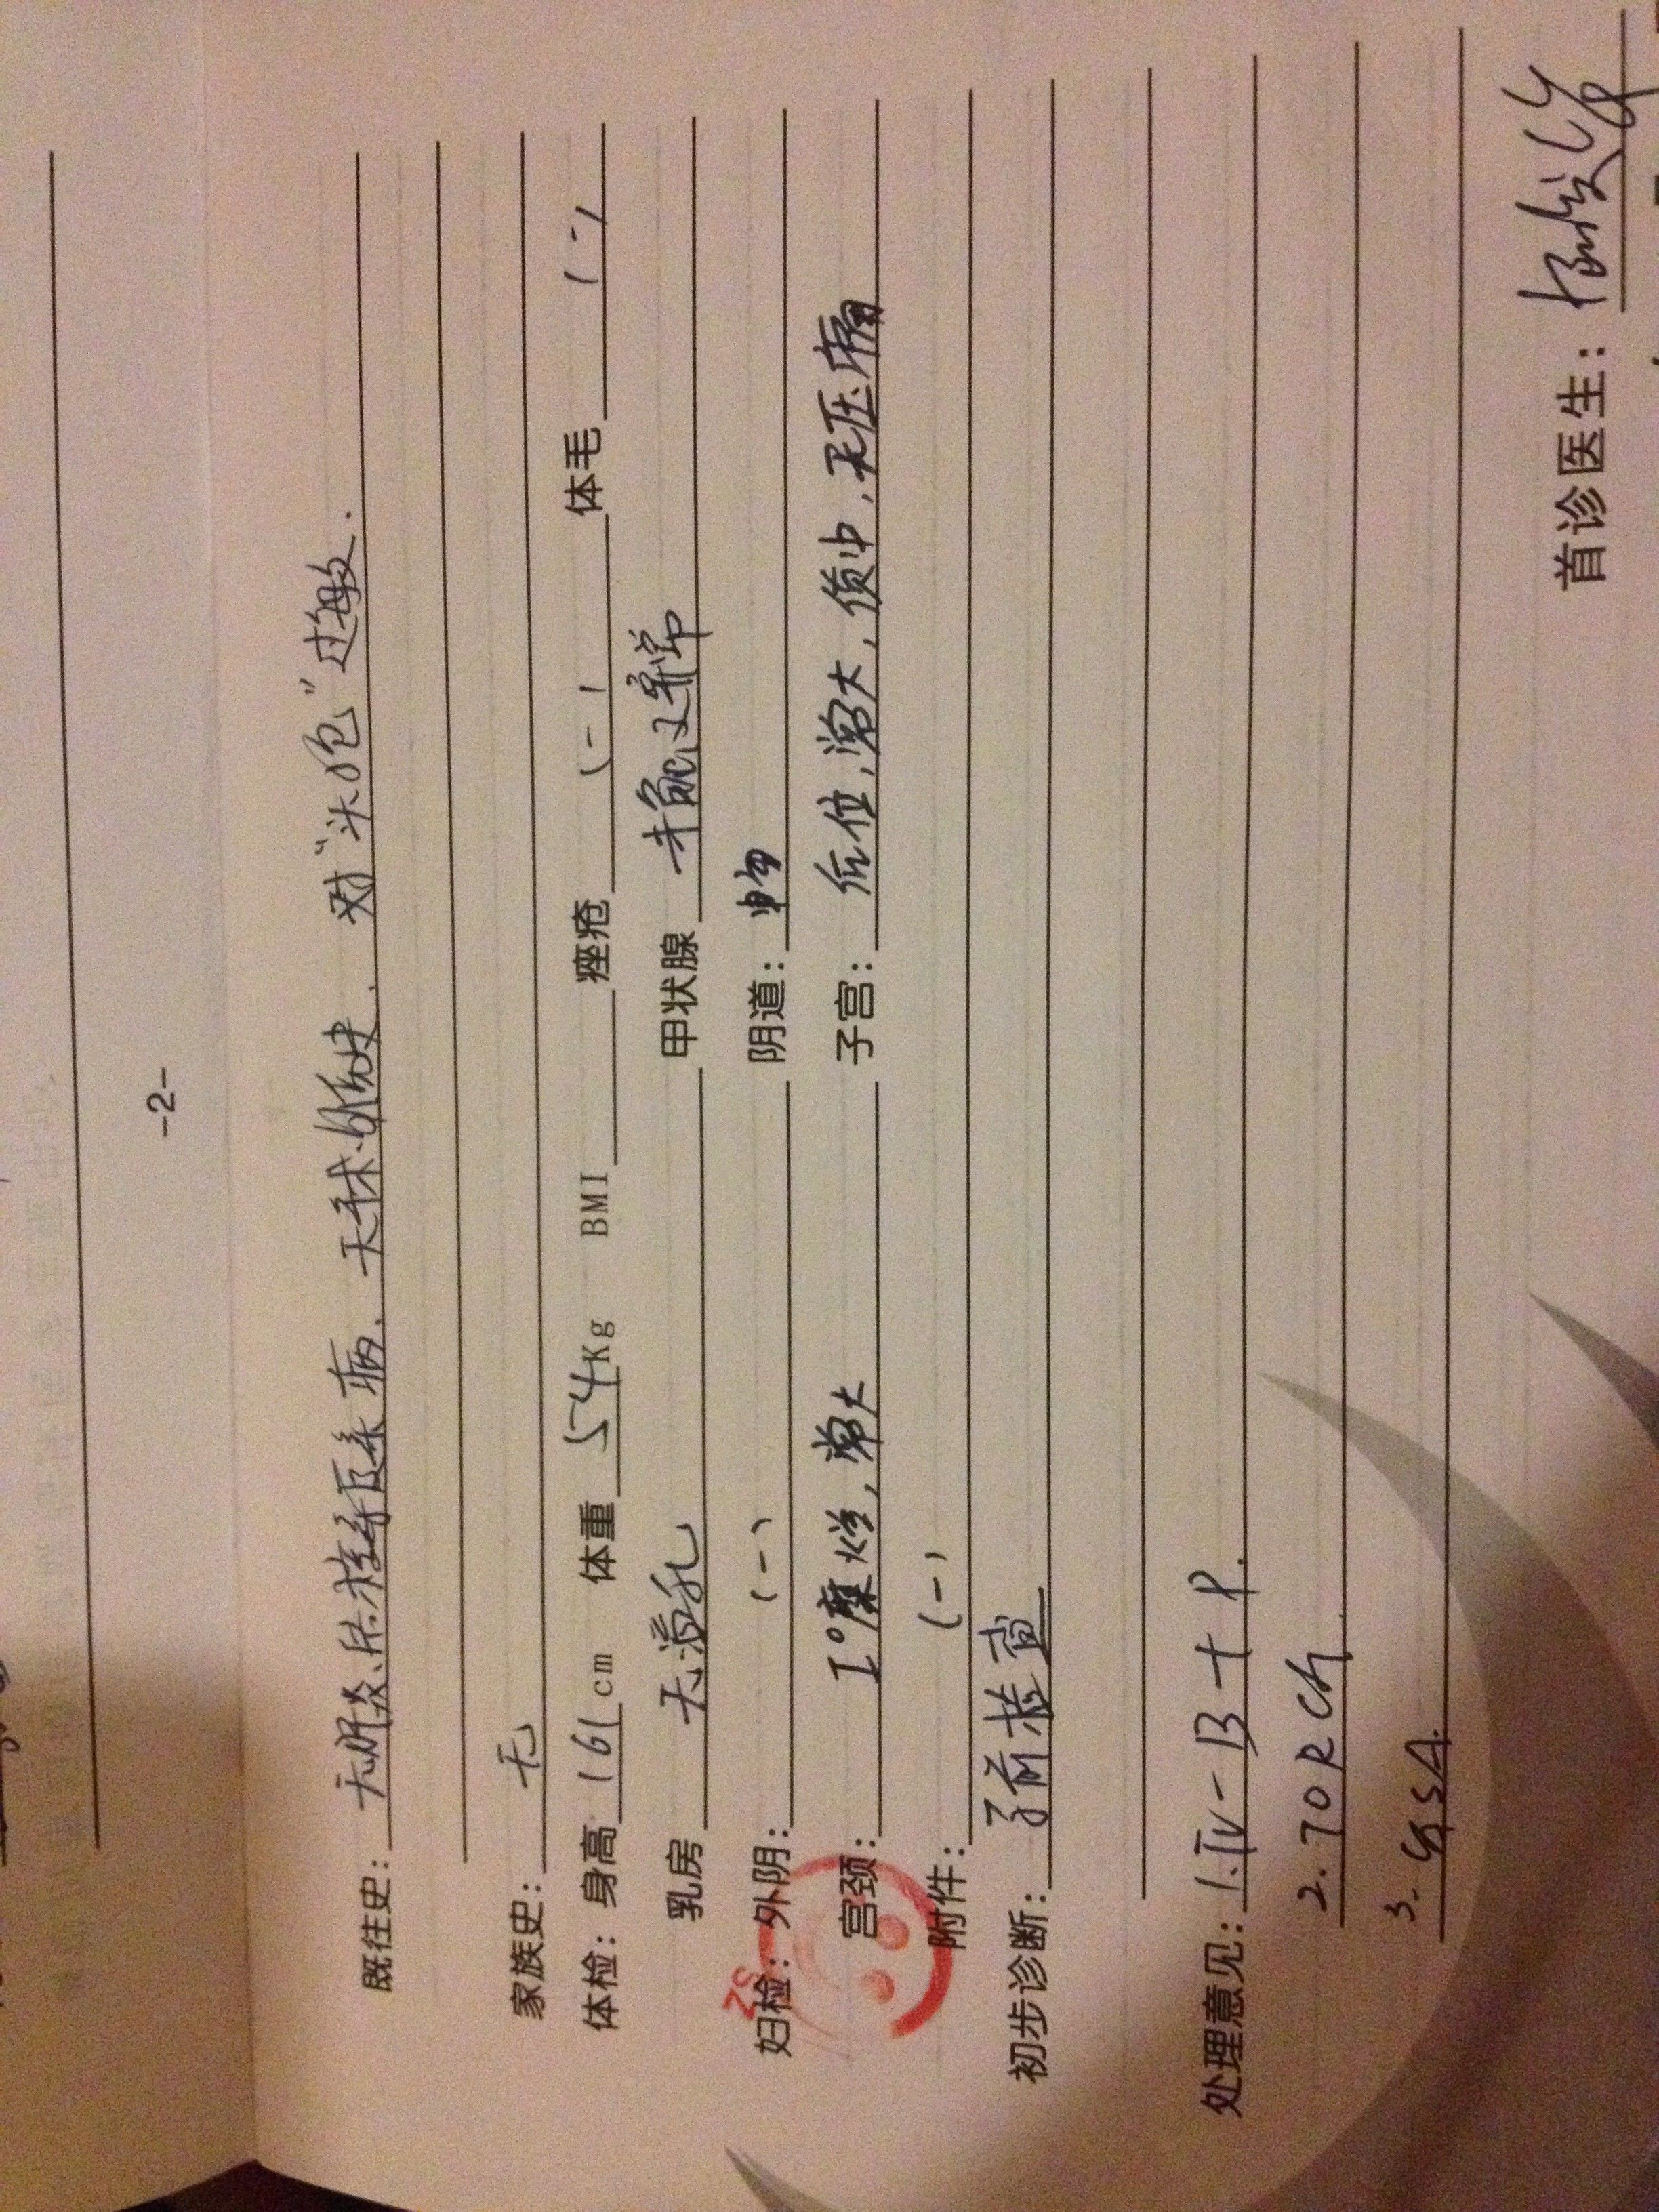 -2-
既往史: 无肝炎、肺结核等病, 无手术外伤史, 对"头孢"过敏.
家族史: 无
体检: 身高 161 cm 体重 54 Kg BMI 痤疮 (-) 体毛 (-)
乳房 无溢乳 甲状腺 未触及异常
妇检: 外阴: (-) 阴道: 畅
宫颈: I°糜烂, 常大 子宫: 后位, 常大, 质中, 无压痛
附件: (-)
初步诊断: 孕前检查
处理意见: 1. TV-B+P.
2. TORCH
3.
首诊医生: